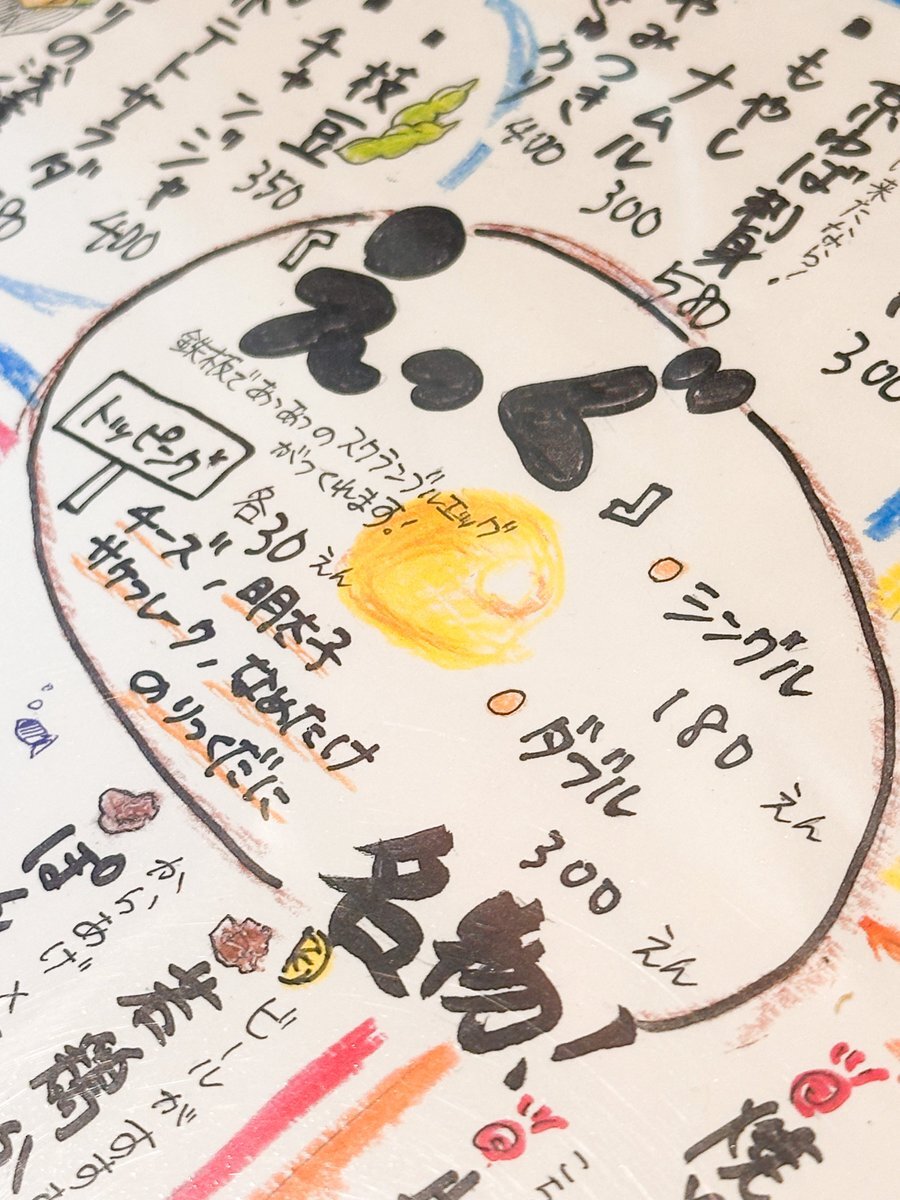 京ゆば刺身!
580
来たなら!
もやし
ナムル
300
やみつき
400
枝豆
350
チャンジャ
400
テトサラダ
300
「えっぐ」
鉄板であつあつのスクランブルエッグ
がつくれます!
トッピング
各30えん
チーズ、明太子
サケフレーク、なめたけ
のりつくだに
シングル
180えん
ダブル
300えん
名物!
からあげ
若鶏
ビールが